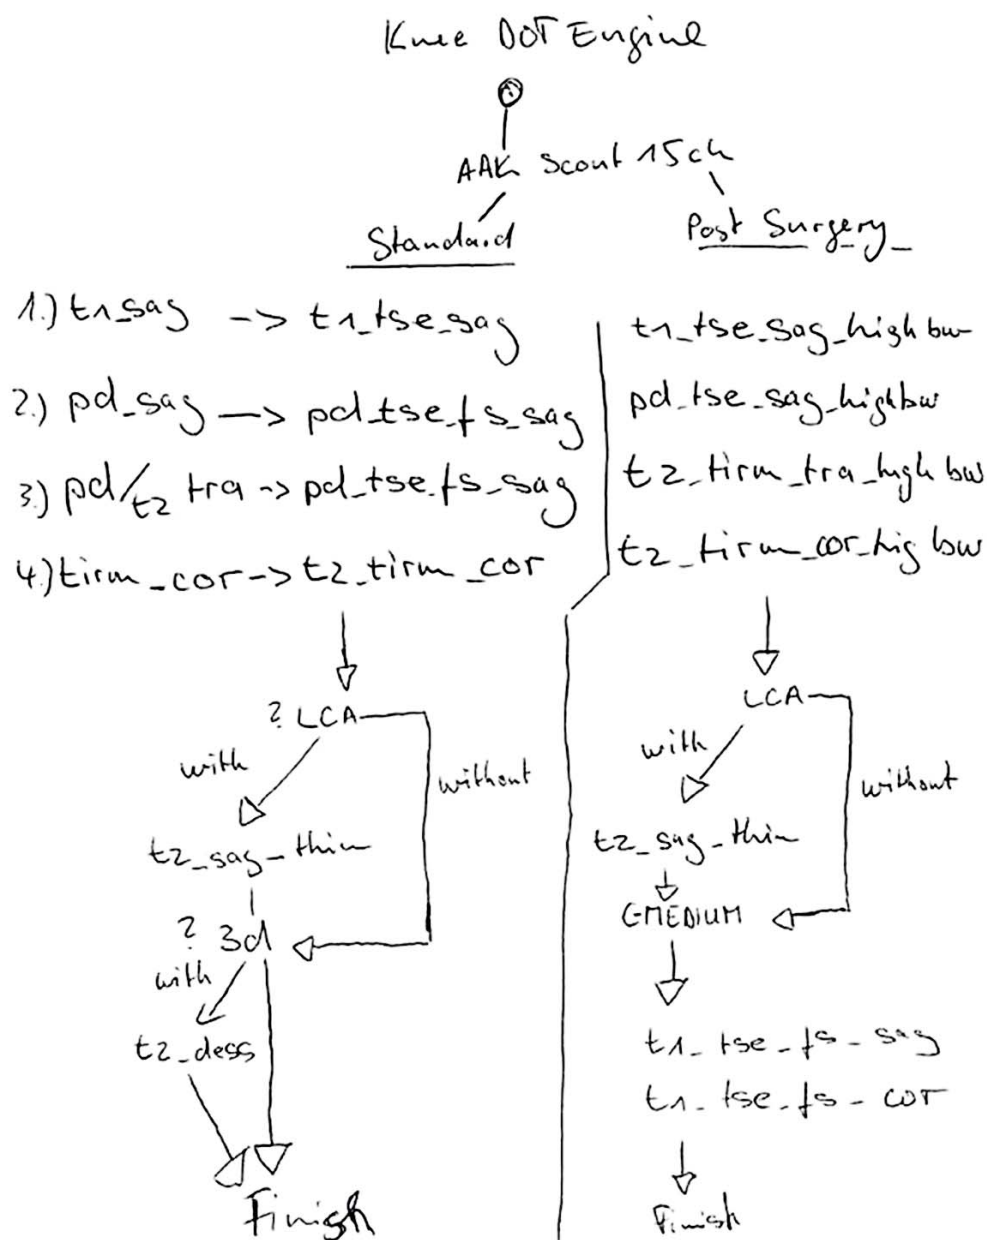 Knee DOT Engine
AAK Scout 15ch
Standard
1.) t1_sag -> t1_tse_sag
2.) pd_sag -> pd_tse_fs_sag
3.) pd/t2 tra -> pd_tse_fs_sag
4.) tirm_cor -> t2_tirm_cor
? LCA
with
without
t2_sag_thin
? 3d
with
t2_dess
Finish
Post Surgery
t1_tse_sag_high bw
pd_tse_sag_highbw
t2_tirm_tra_high bw
t2_tirm_cor_hig bw
LCA
with
without
t2_sag_thin
t1_tse_fs_sag
t1_tse_fs_cor
Finish